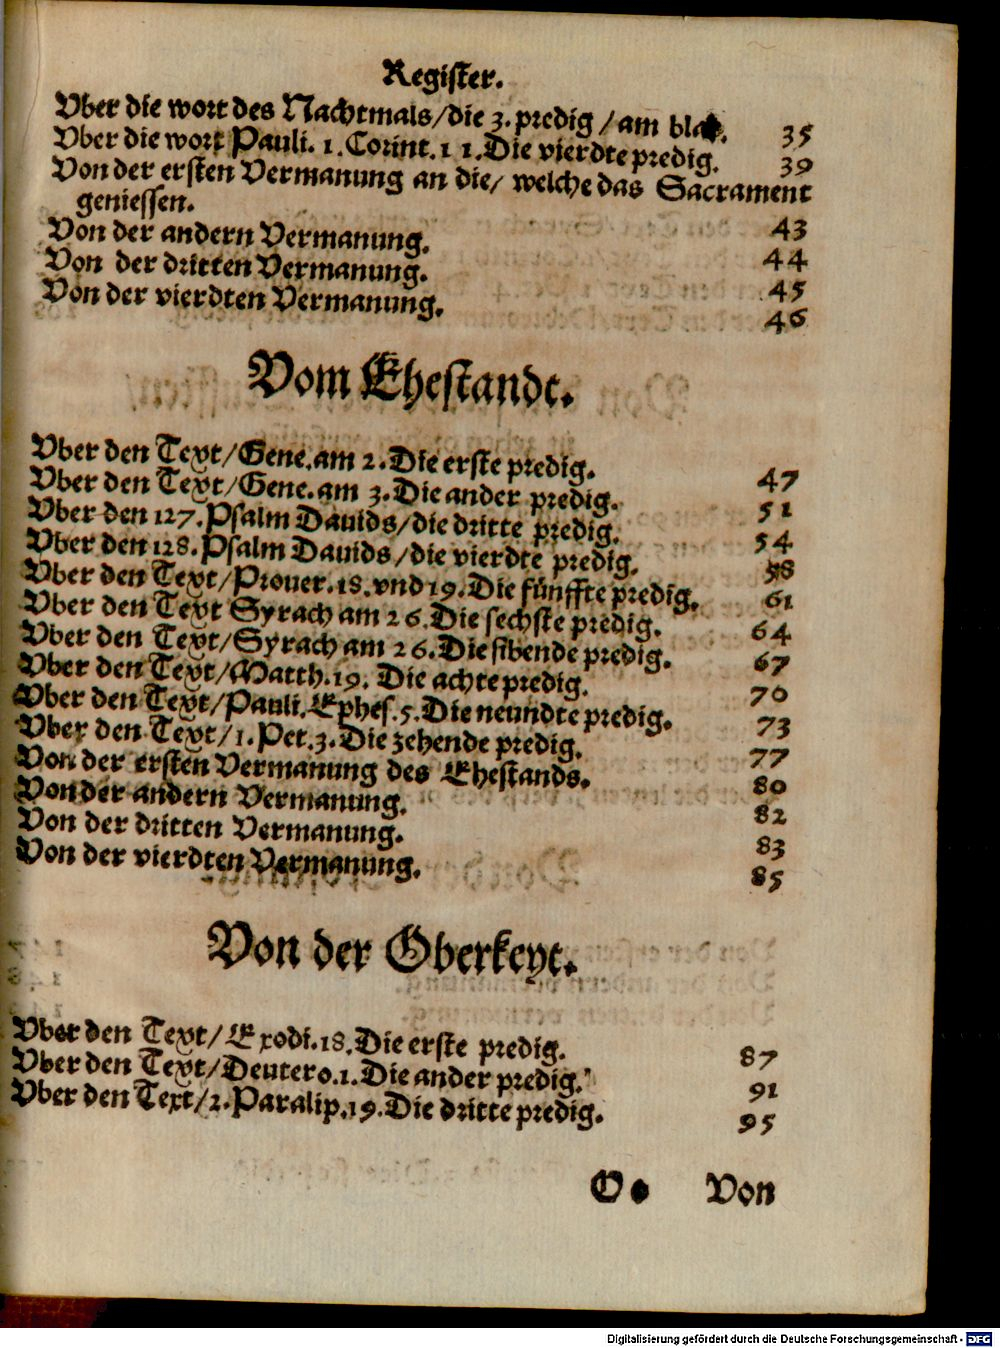 Register.
Vber die wort des Nachtmals/die 3. predig/am blat. 35
Vber die wort Pauli. 1. Corint. 11. Die vierdte predig. 39
Von der ersten Vermanung an die/ welche das Sacrament
geniessen. 43
Von der andern Vermanung. 44
Von der dritten Vermanung. 45
Von der vierdten Vermanung. 46
Vom Ehestandt.
Vber den Text/Gene. am 2. Die erste predig. 47
Vber den Text/Gene. am 3. Die ander predig. 51
Vber den 127. Psalm Dauids/die dritte predig. 54
Vber den 128. Psalm Dauids/die vierdte predig. 58
Vber den Text/Prouer. 18. vnd 19. Die fünffte predig. 61
Vber den Text Syrach am 26. Die sechste predig. 64
Vber den Text/Syrach am 26. Die sibende predig. 67
Vber den Text/Matth. 19. Die achte predig. 70
Vber den Text/Pauli. Ephes. 5. Die neundte predig. 73
Vber den Text/1. Pet. 3. Die zehende predig. 77
Von der ersten Vermanung des Ehestands. 80
Von der andern Vermanung. 82
Von der dritten Vermanung. 83
Von der vierdten Vermanung. 85
Von der Oberkeyt.
Vber den Text/Exodi. 18. Die erste predig. 87
Vber den Text/Deutero. 1. Die ander predig. 91
Vber den Text/2. Paralip. 19. Die dritte predig. 95
Von
Digitalisierung gefördert durch die Deutsche Forschungsgemeinschaft - DFG